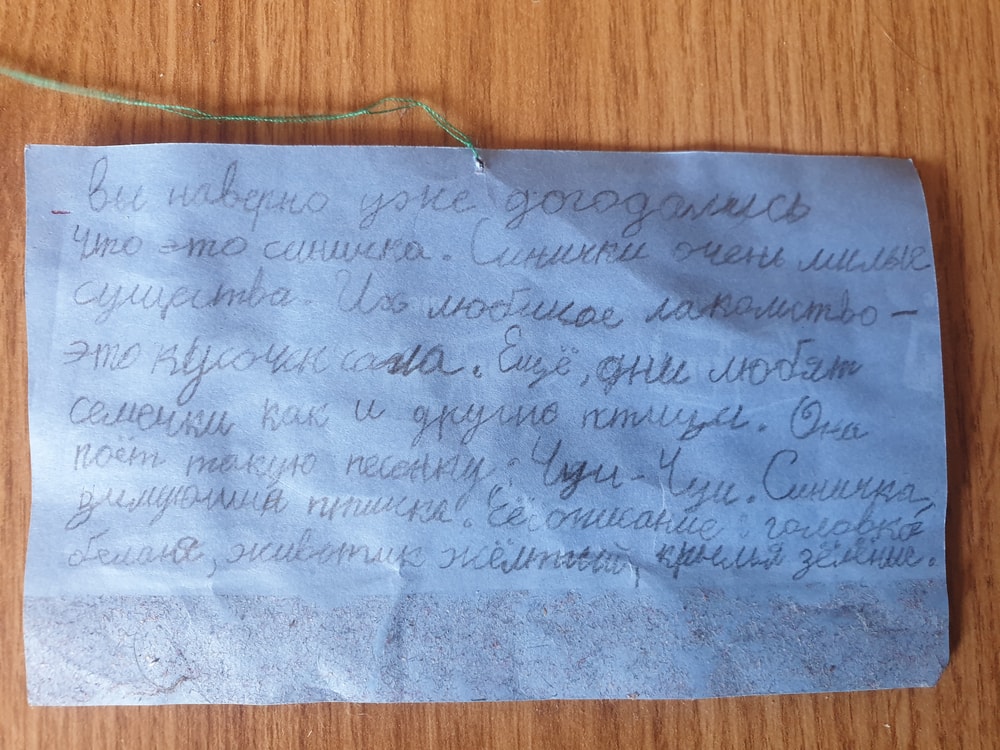 Вы наверно уже догодались
что это синичка. Синички очень милые
существа. Их любимое лакомство -
это кусочки сала. Ещё, они любят
семечки как и другие птицы. Она
поёт такую песенку: Чуи - Чуи. Синичка,
зимующая птичка. Её описание: головка
белая, животик жёлтый, крылья зелёные.